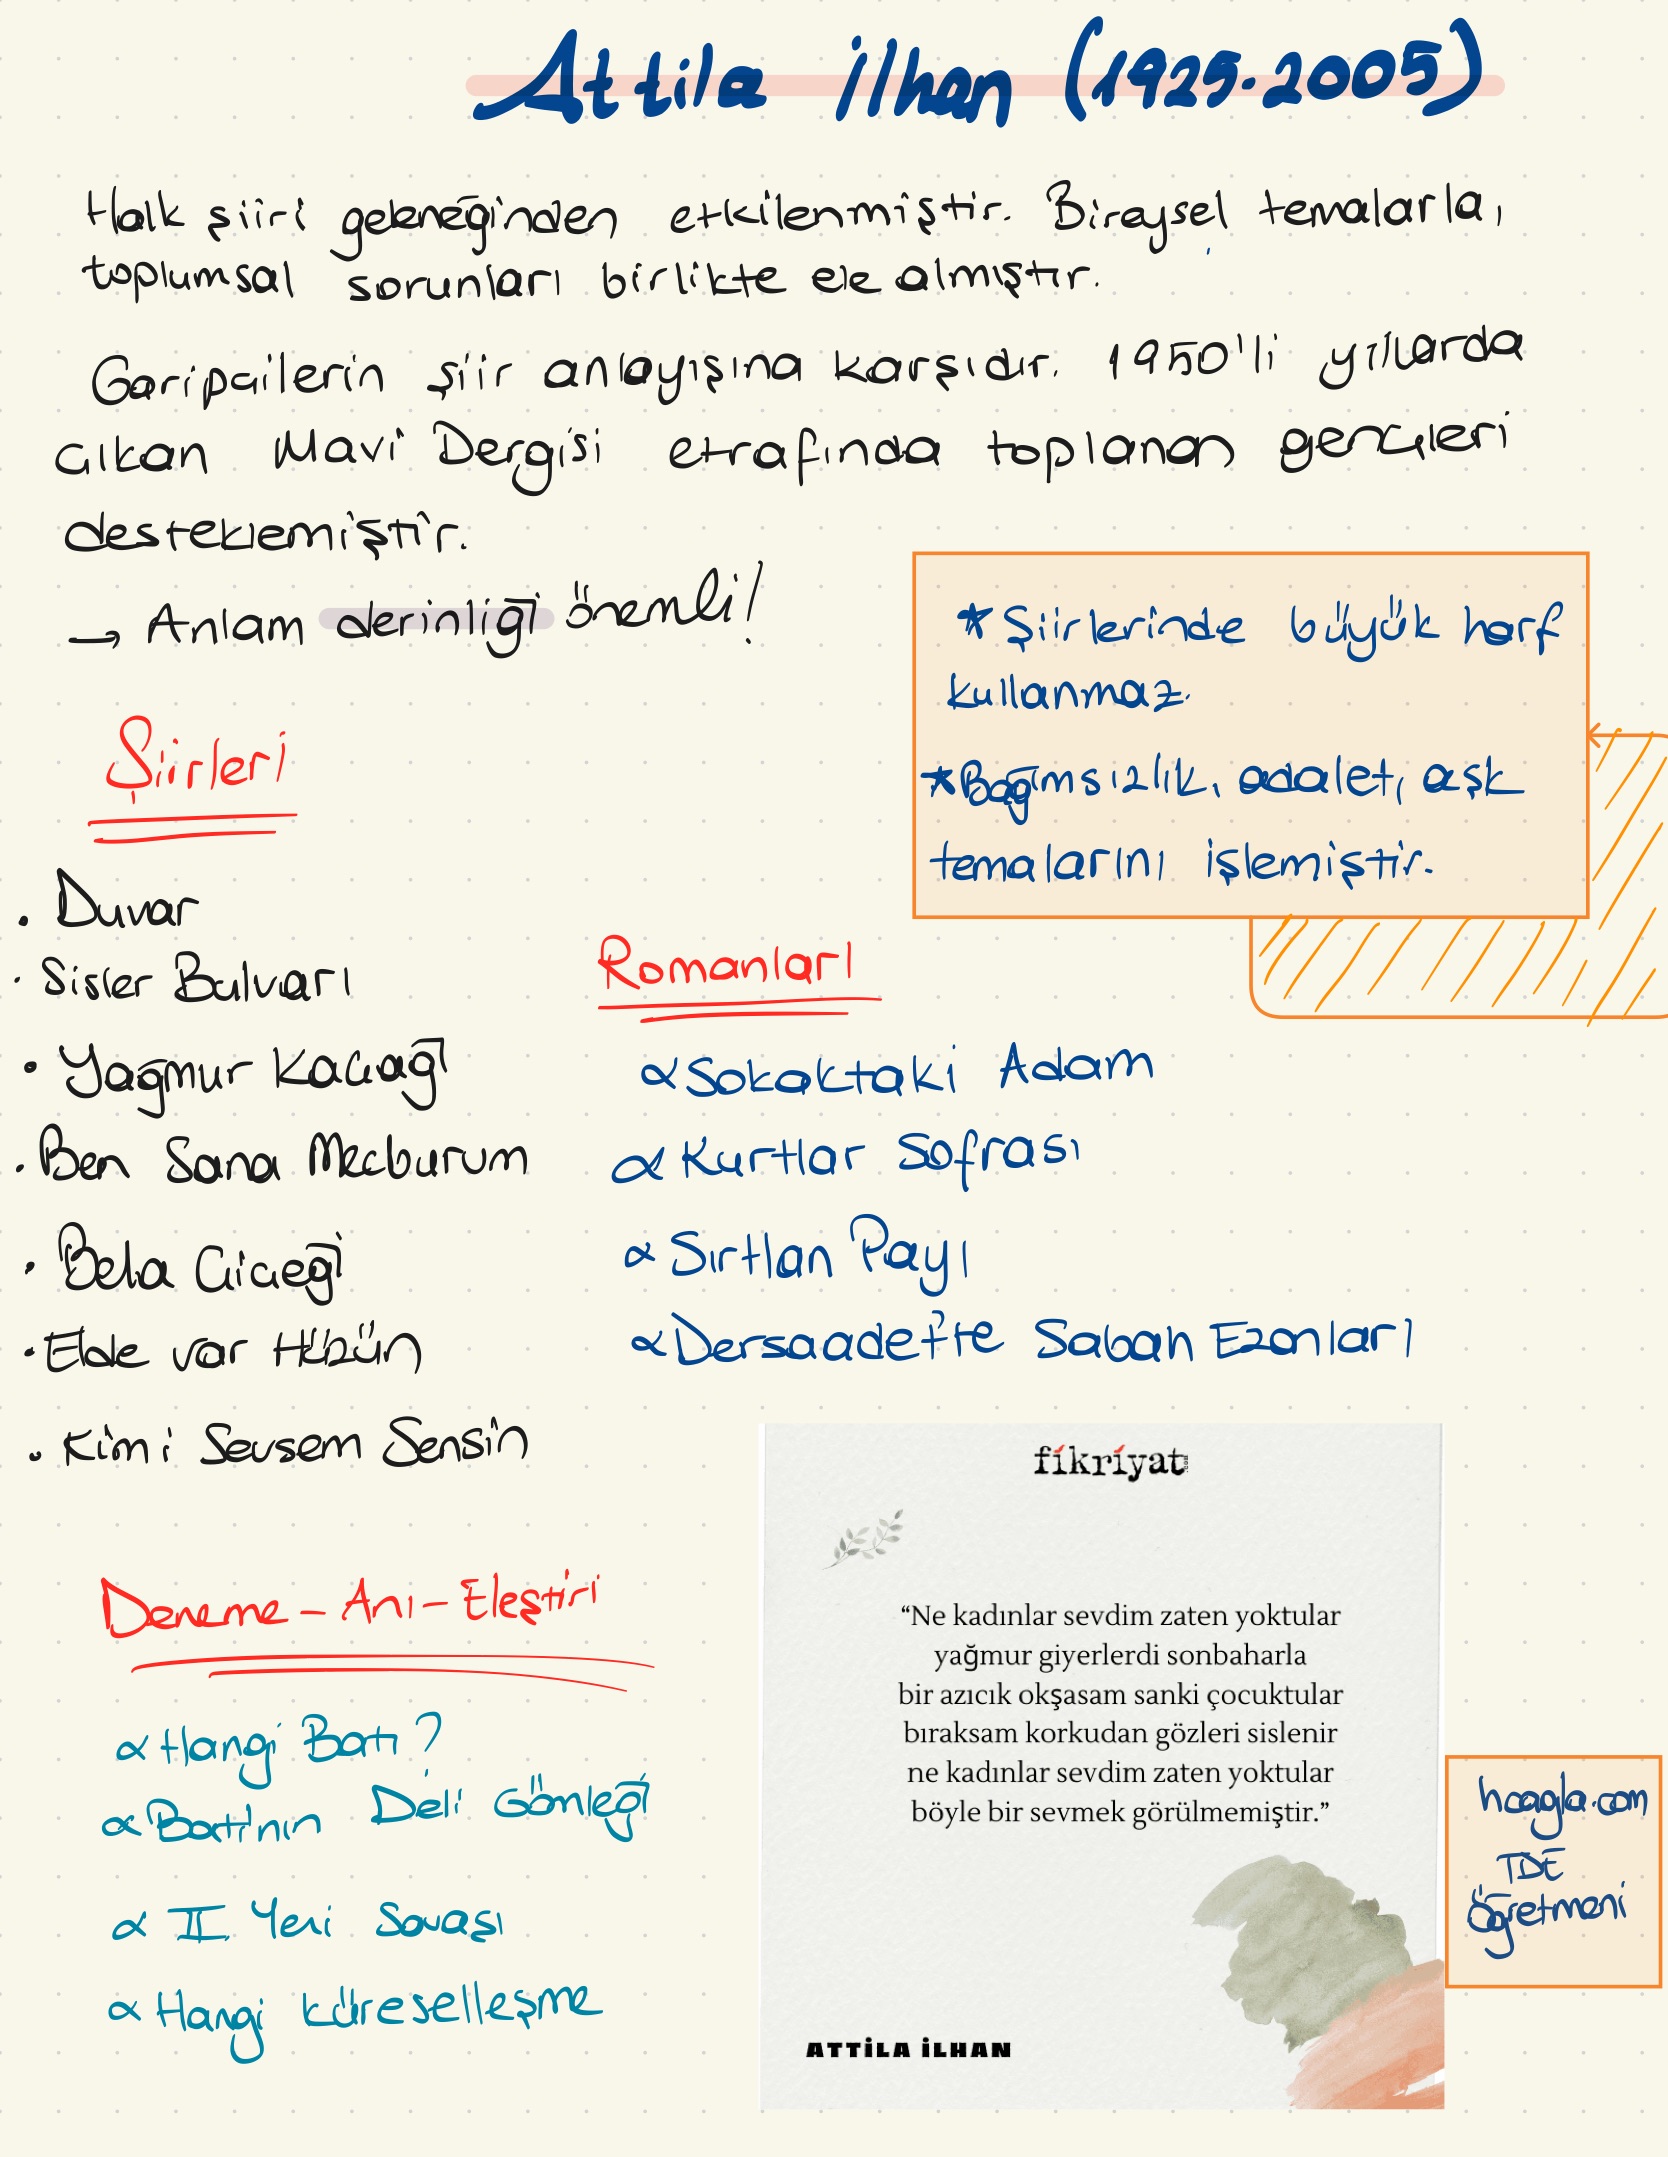 Attila İlhan (1925-2005)
Halk şiiri geleneğinden etkilenmiştir. Bireysel temalarla,
toplumsal sorunları birlikte ele almıştır.
Garipçilerin şiir anlayışına karşıdır. 1950'li yıllarda
çıkan Mavi Dergisi etrafında toplanan gençleri
desteklemiştir.
→ Anlam derinliği önemli!
* Şiirlerinde büyük harf
kullanmaz.
* Bağımsızlık, adalet, aşk
temalarını işlemiştir.
Şiirleri
. Duvar
. Sisler Bulvarı
. Yağmur Kaçağı
. Ben Sana Mecburum
. Bela Çiçeği
. Elde var Hüzün
. Kimi Sevsem Sensin
Romanları
∝ Sokaktaki Adam
∝ Kurtlar Sofrası
∝ Sırtlan Payı
∝ Dersaadet'te Sabah Ezanları
Deneme - Anı - Eleştiri
∝ Hangi Batı?
∝ Batı'nın Deli Gömleği
∝ II. Yeni Savaşı
∝ Hangi küreselleşme
fikriyat.com
“Ne kadınlar sevdim zaten yoktular
yağmur giyerlerdi sonbaharla
bir azıcık okşasam sanki çocuktular
bıraksam korkudan gözleri sislenir
ne kadınlar sevdim zaten yoktular
böyle bir sevmek görülmemiştir.”
ATTİLA İLHAN
hcagla.com
TDE
Öğretmeni